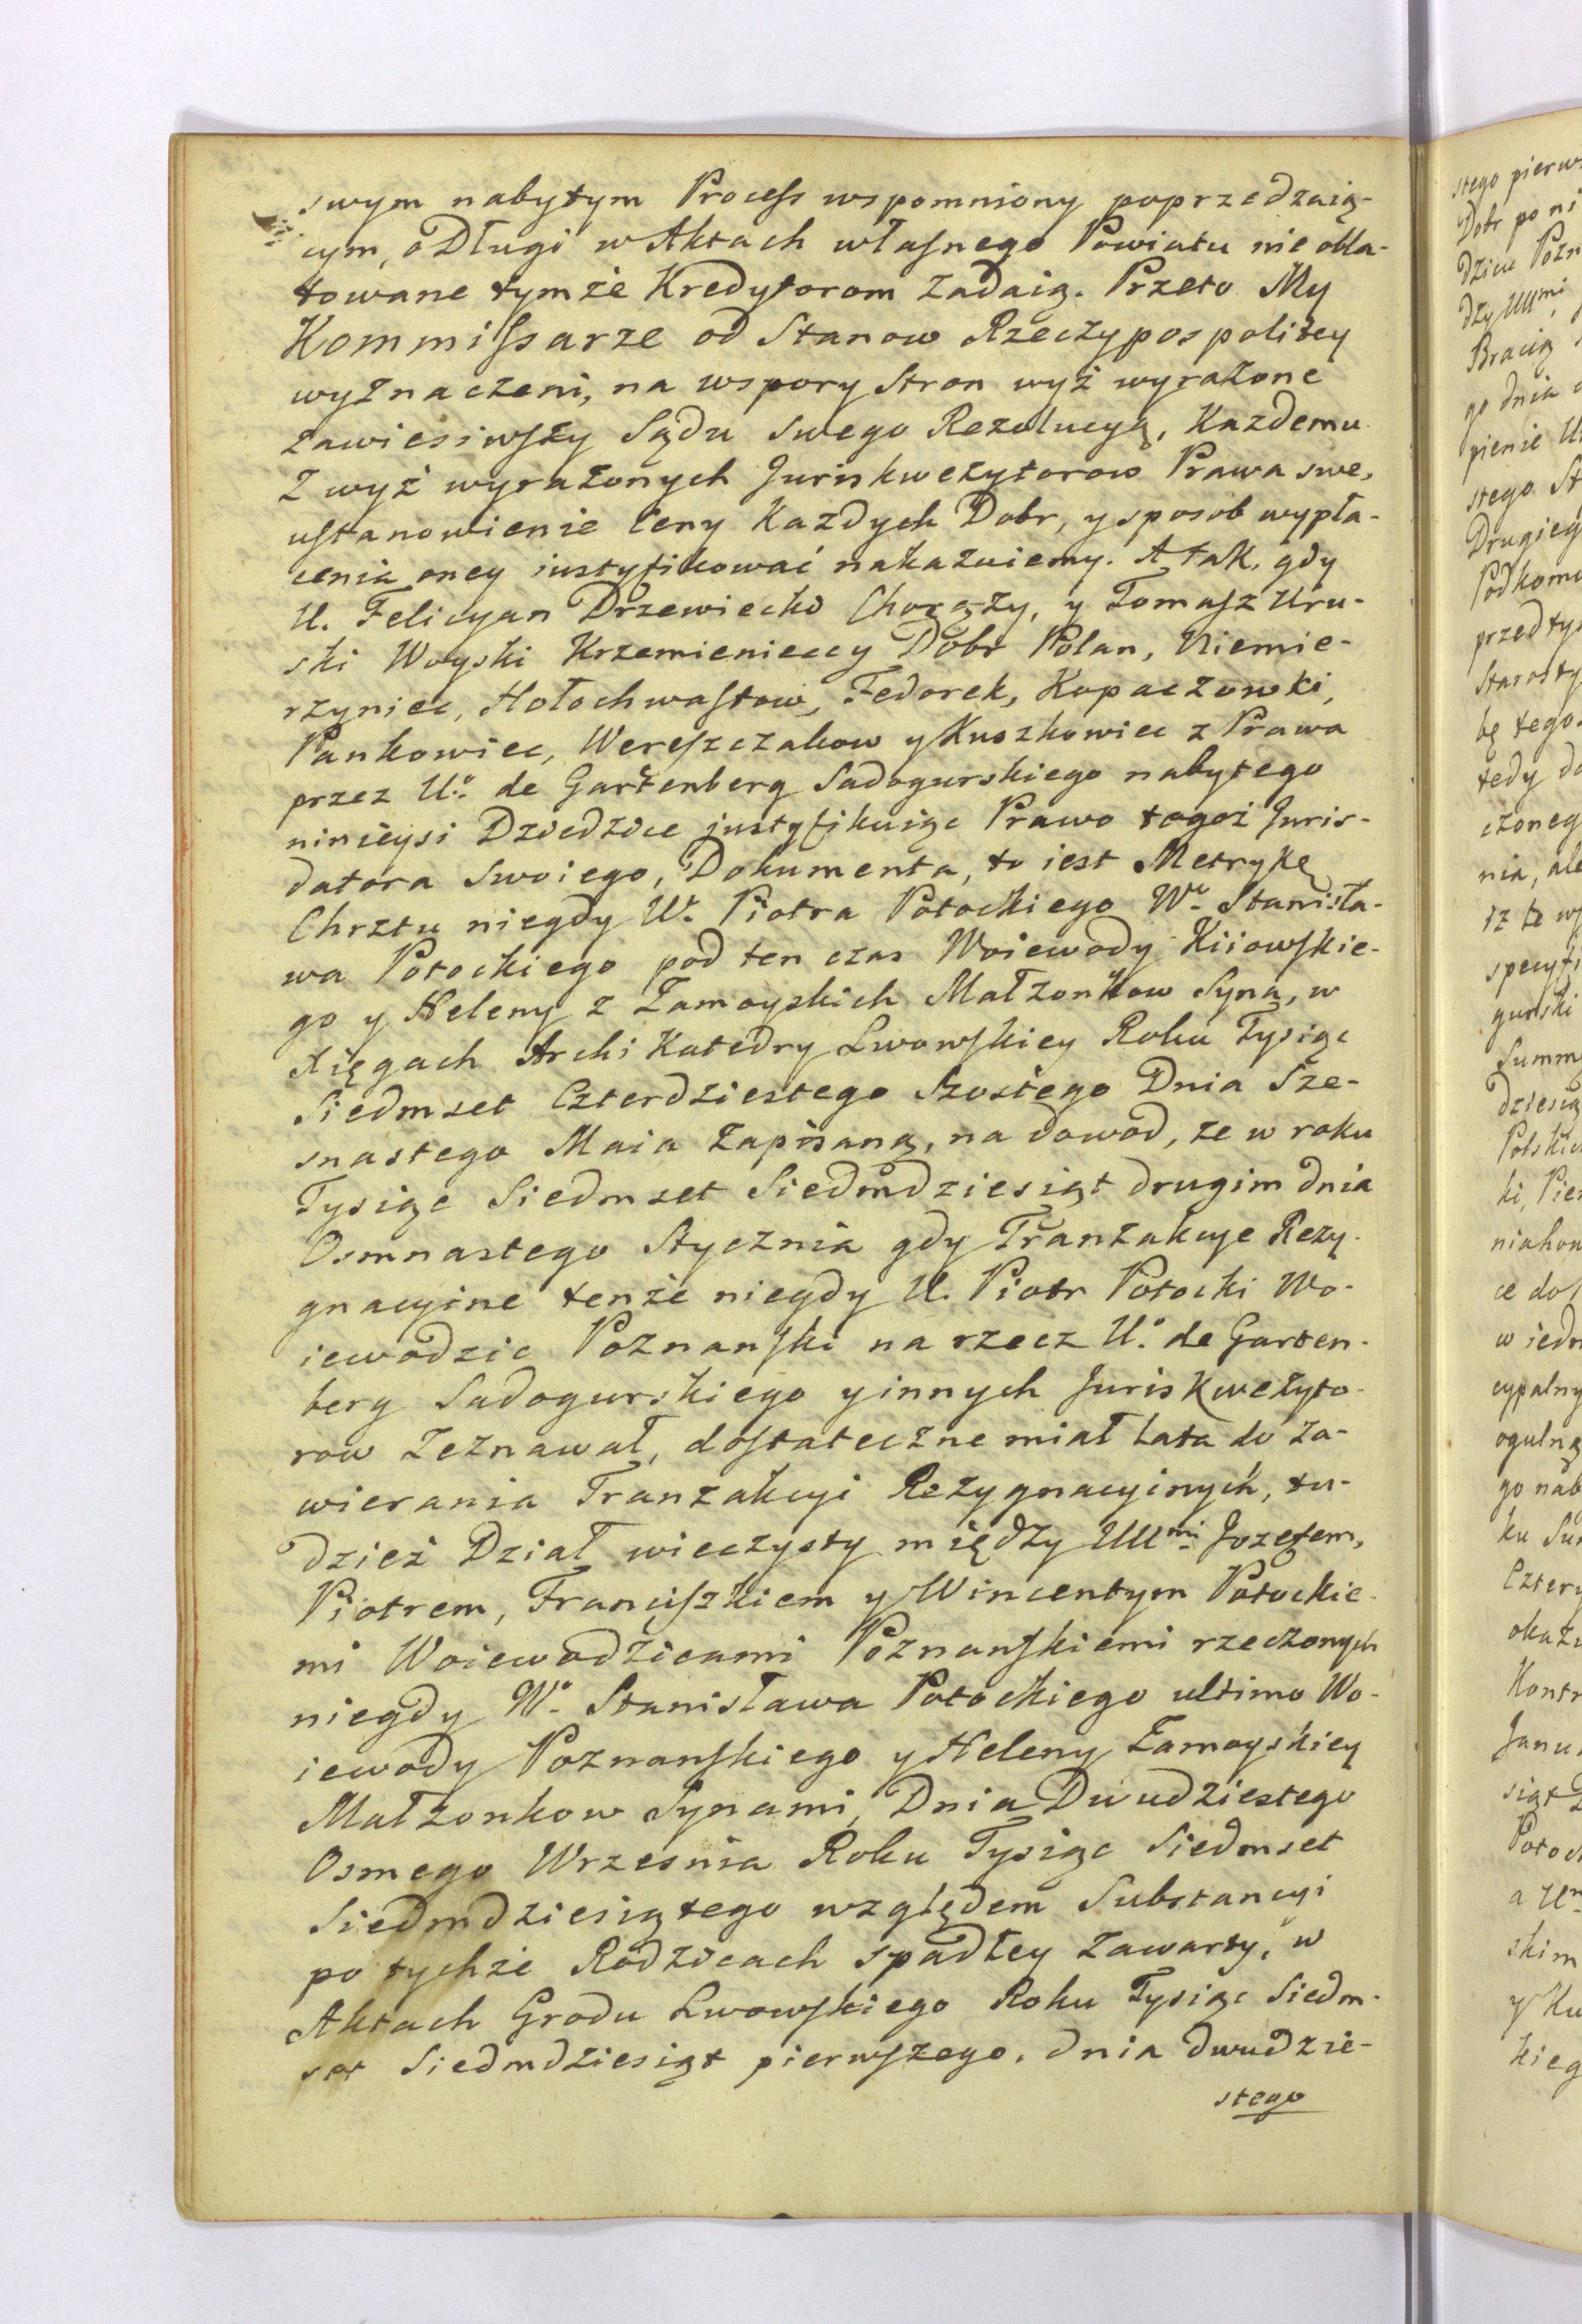 swym nabytym Process wspomniony poprzedzaią-
cym, o Długi w Aktach własnego Powiatu nie obla-
towane tymże Kredytorom zadaią. Przeto My
Kommissarze od Stanow Rzeczypospolitey
wyznaczeni, na wspory Stron wyż wyrażone
zawiesiwszy Sądu swego Rezolucyą, Każdemu
z wyż wyrażonych Juriskwezytorow Prawa swe,
ustanowienie Ceny Każdych Dobr, y sposob wypła-
cenia oney iustyfikować nakazuiemy. A tak, gdy
U. Felicyan Drzewiecki Chorąży, y Tomasz Uru-
ski Woyski Krzemienieccy Dobr Polan, Niemie-
rzyniec, Hołochwastow, Fedorek, Kopaczowki,
Pankowiec, Wereszczakow y Kuszkowiec z Prawa
przez U.o de Gartenberg Sadogurskiego nabytego
ninieysi Dziedzice justyfikuiąc Prawo tegoż Juris-
datora swoiego, Dokumenta, to iest Metrykę
Chrztu niegdy W. Piotra Potockiego W.o Stanisła-
wa Potockiego pod ten czas Woiewody Kiiowskie-
go y Heleny z Zamoyskich Małzonkow Syna, w
Xięgach Archi Katedry Lwowskiey Roku Tysiąc
Siedmset Czterdziestego Szostego Dnia Sze-
snastego Maia zapisaną, na dowod, ze w roku
Tysiąc Siedmset Siedmdziesiąt drugim dnia
Osmnastego Stycznia gdy Tranzakcye Rezy-
gnacyine tenże niegdy U. Piotr Potocki Wo-
iewodzic Poznanski na rzecz U.o de Garten-
berg Sadogurskiego y innych Juriskwezyto-
row zeznawał, dostateczne miał Lata do za-
wierania Tranzakcyi Rezygnacyinych, tu-
dzież Dział wieczysty między UU.mi Jozefem,
Piotrem, Franciszkiem y Wincentym Potockie-
mi Woiewodzicami Poznanskiemi rzeczonych
niegdy W.o Stanisława Potockiego ultimo Wo-
iewody Poznanskiego y Heleny Zamoyskiey
Małzonkow Synami, Dnia Dwudziestego
Osmego Wrzesnia Roku Tysiąc Siedmset
Siedmdziesiątego względem Substancyi
po tychże Rodzicach spadłey zawarty, w
Aktach Grodu Lwowskiego Roku Tysiąc Siedm-
set Siedmdziesiąt pierwszego, dnia dwudzie-
stego